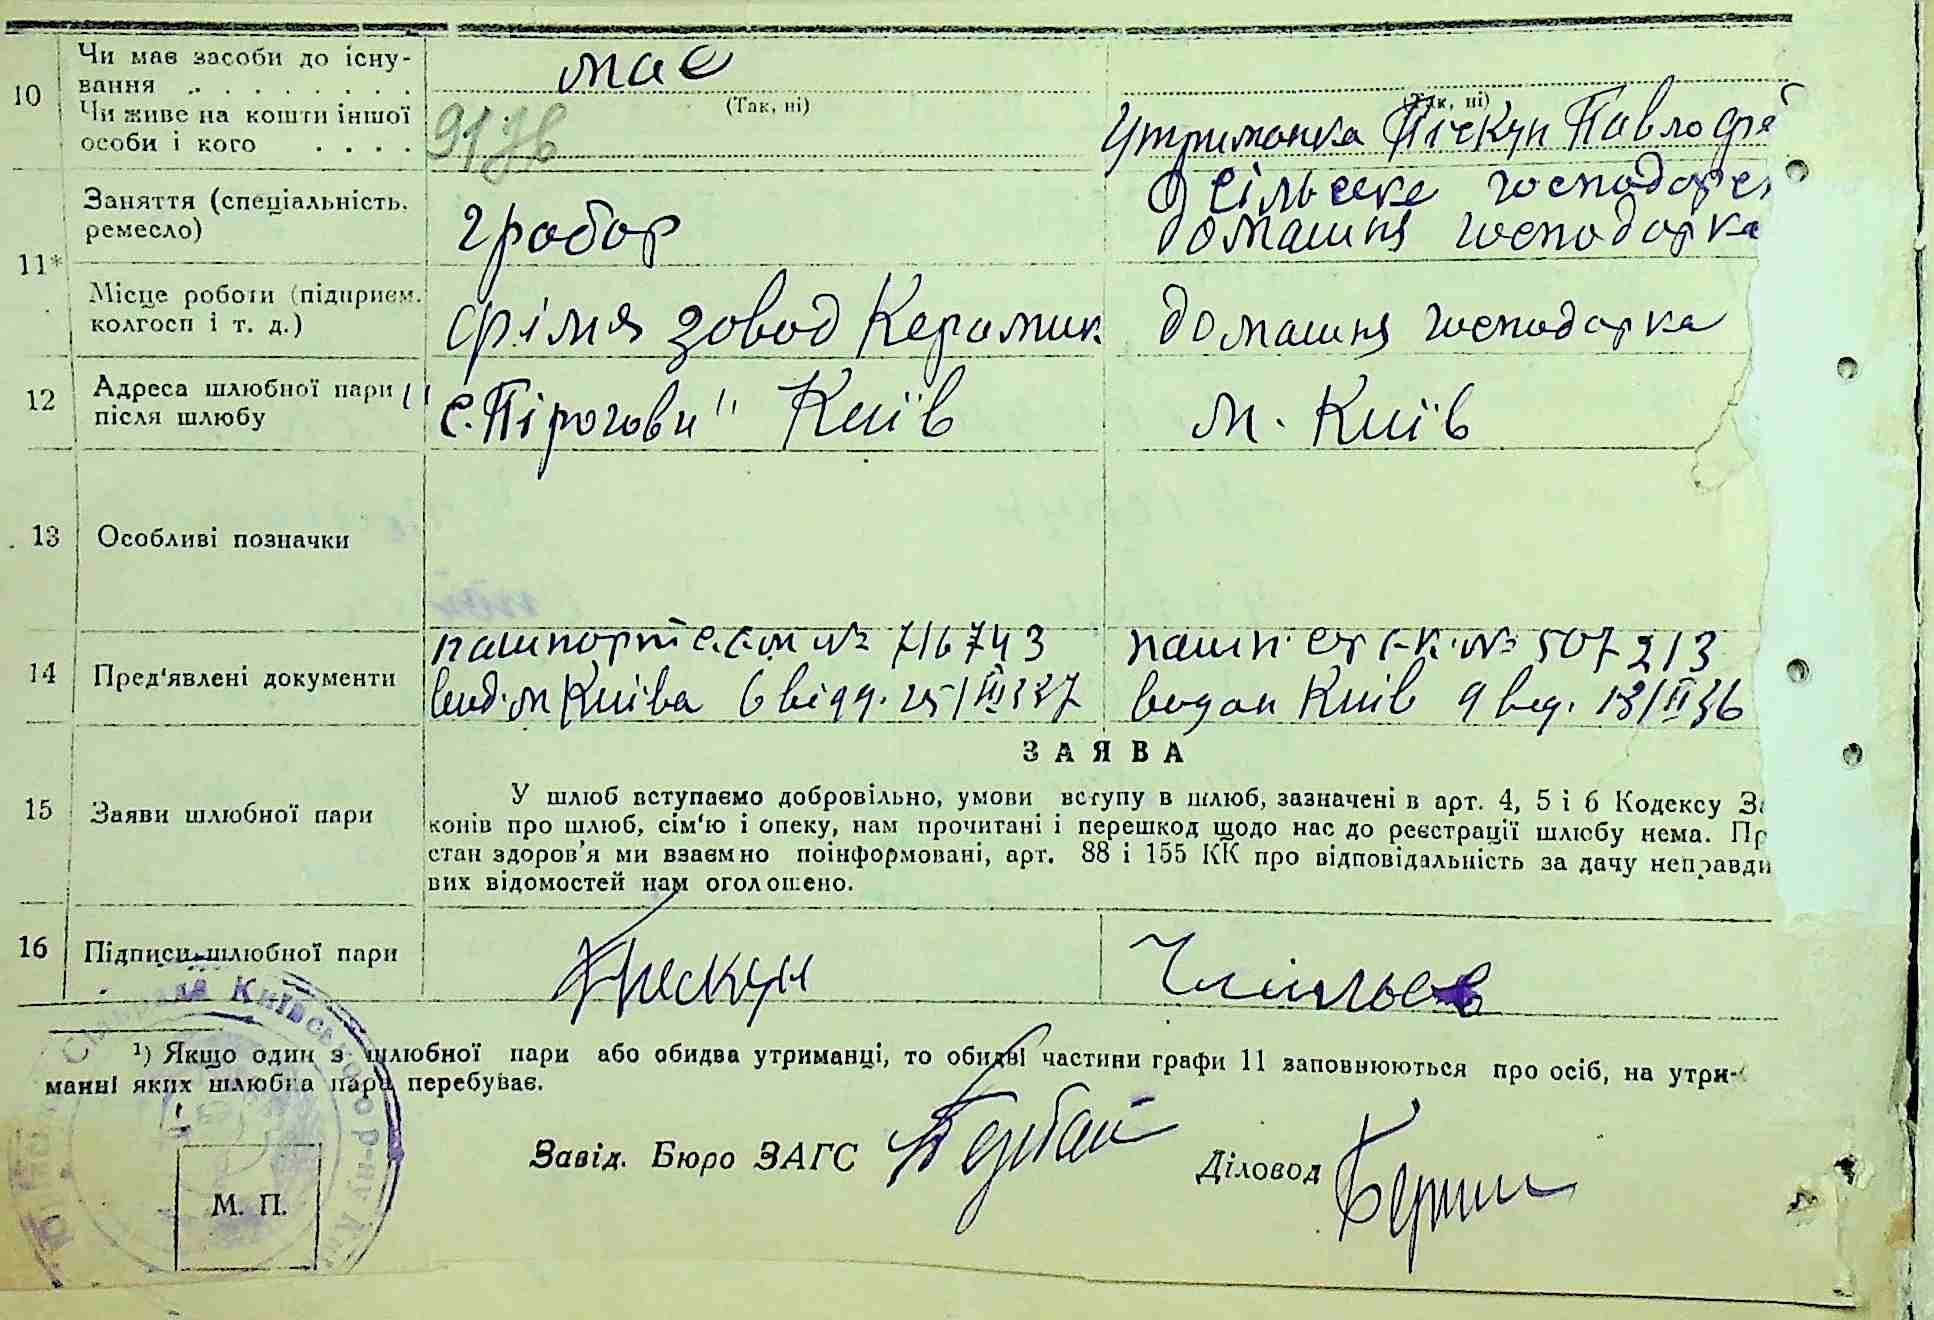 10
Чи має засоби до існу-
вання . . . . . . . .
Чи живе на кошти іншої
особи і кого . . . .
має
(Так, ні)
(Так, ні)
Утриманка Піскун Павло
сільське господарс
11*
Заняття (спеціальність,
ремесло)
грабар
домашня господарка
Місце роботи (підприєм.
колгосп і т. д.)
завод Керамик
домашня господарка
12
Адреса шлюбної пари
після шлюбу
"с. Пірогови" Київ
м. Київ
13
Особливі позначки
14
Пред'явлені документи
пашпорт № 716743
вид. м Києва 6 відд. 25/III 337
пашп. № 507213
видан Київ 9 вид. 13/II 36
15
Заяви шлюбної пари
ЗАЯВА
У шлюб вступаємо добровільно, умови вступу в шлюб, зазначені в арт. 4, 5 і 6 Кодексу За
конів про шлюб, сім'ю і опеку, нам прочитані і перешкод щодо нас до реєстрації шлюбу нема. Пр
стан здоров'я ми взаємно поінформовані, арт. 88 і 155 КК про відповідальність за дачу неправди
вих відомостей нам оголошено.
16
Підписи шлюбної пари
Пискун
¹) Якщо один з шлюбної пари або обидва утриманці, то обидві частини графи 11 заповнюються про осіб, на утри-
манні яких шлюбна пара перебуває.
Завід. Бюро ЗАГС
Діловод
М. П.